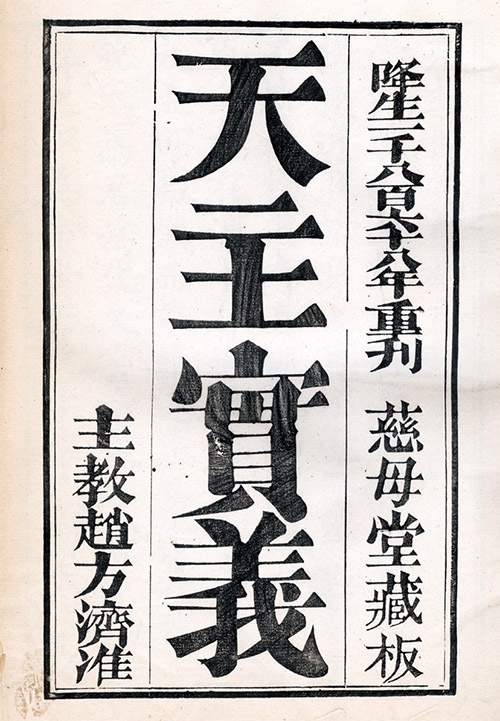 降生一千八百六十八年重刋 慈母堂藏板
天主實義
主教趙方濟准